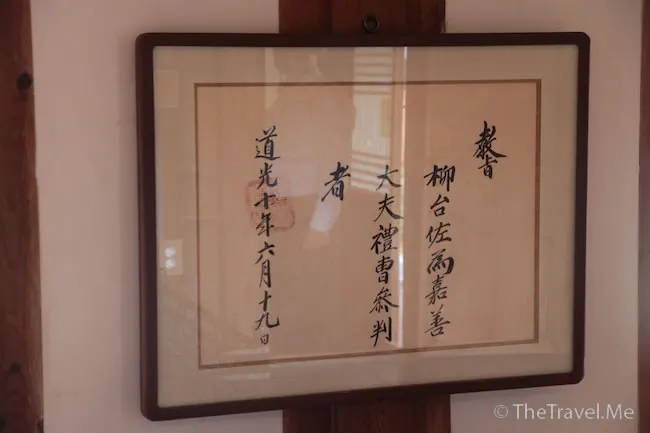 敎旨
柳台佐為嘉善
大夫禮曹參判
者
道光十年六月十九日
© TheTravel.Me